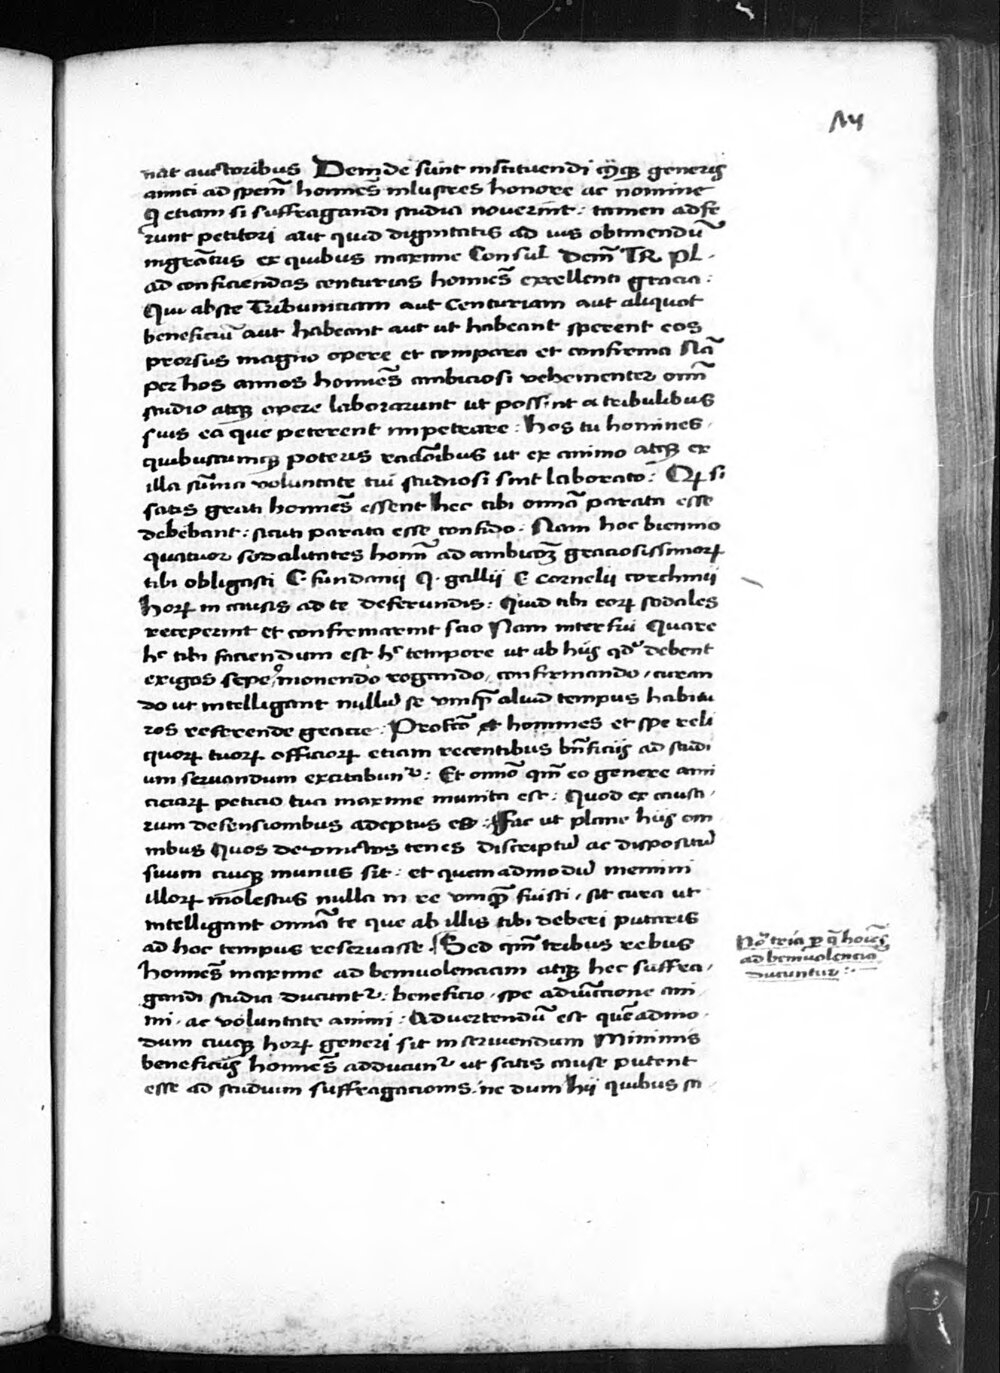 14
nat auctoribus Deinde sunt instituendi cuiꝰqꝫ generis
amici ad speciem̄ homines̄ inlustres honore ac nomine
Qͥ etiam si suffragandi studia noverint : tamen adfe
runt petitori aut quid dignitatis ad ius obtinendū
ingratius ex quibus maxime Consul Dem̄ TR PL .
ad conficiendas centurias homines̄ excellenti gracia :
Qui abste Tribuniciam aut Centuriam aut aliquot
beneficiū aut habeant aut ut habeant sperent eos
prorsus magno opere et compara et confirma Nā
per hos annos homines̄ ambiciosi vehementer omī
studio atqꝫ opere laborarunt ut possint a tribulibus
suis ea que peterent impetrare : Hos tu homines .
quibuscumqꝫ poteris racōibus ut ex animo atqꝫ ex
illa sūma voluntate tui studiosi sint laborato : Qͩ si
satis grati homines̄ essent hec tibi omīa parata esse
debebant : sicuti parata esse confido . Nam hoc biennio
quatuor sodalitates homī ad ambicōꝫ graciosissimoꝝ
tibi obligasti C fundanij Q . gallij C cornelij corchinij
Hoꝝ in causis ad te deferundis : Quid tibi eoꝝ sodales
receperint et confirmarint scio Nam interfui Quare
hͨ tibi faciendum est hͨ tempore ut ab hijs qͩ debent
exigas sepeꝰ monendo rogando , confirmando , curan
do ut intelligant nullū se vmqͣm aliud tempus habitu
ros referende gracie : Profcō et homines et spe reli
quoꝝ tuoꝝ officioꝝ etiam recentibus bn̄ficijs ad studi
um servandum excitabunt᷑ : Et omīo qm̄ eo genere ami
ciciaꝝ peticio tua maxime munita est : Quod ex causa ,
rum defensionibus adeptus es : Fac ut plane hijs om
nibus Quos devinctos tenes discriptū ac dispositū
suum cuiqꝫ munus sit : et quemadmodū nemini
illoꝝ molestus nulla in re vmqͣm fuisti , sit cura ut
intelligant omīa te que ab illis tibi deberi putaris
ad hoc tempus reservasse . Sed qm̄ tribus rebus
homines̄ maxime ad benivolenciam atqꝫ hec suffra ,
gandi studia ducunt᷑ : beneficio , spe adiunccione ani ,
mi , ac voluntate animi : Advertendū est quēadmo ,
dum cuiqꝫ hoꝝ generi sit inserviendum Minimis
beneficijs homines̄ adducunt᷑ ut satis cause putent
esse ad studium suffragacionis . ne dum hij quibus sa
Noͣ tria ꝑ qͣ hoiēs
ad benivolencia
ducuntur : ~